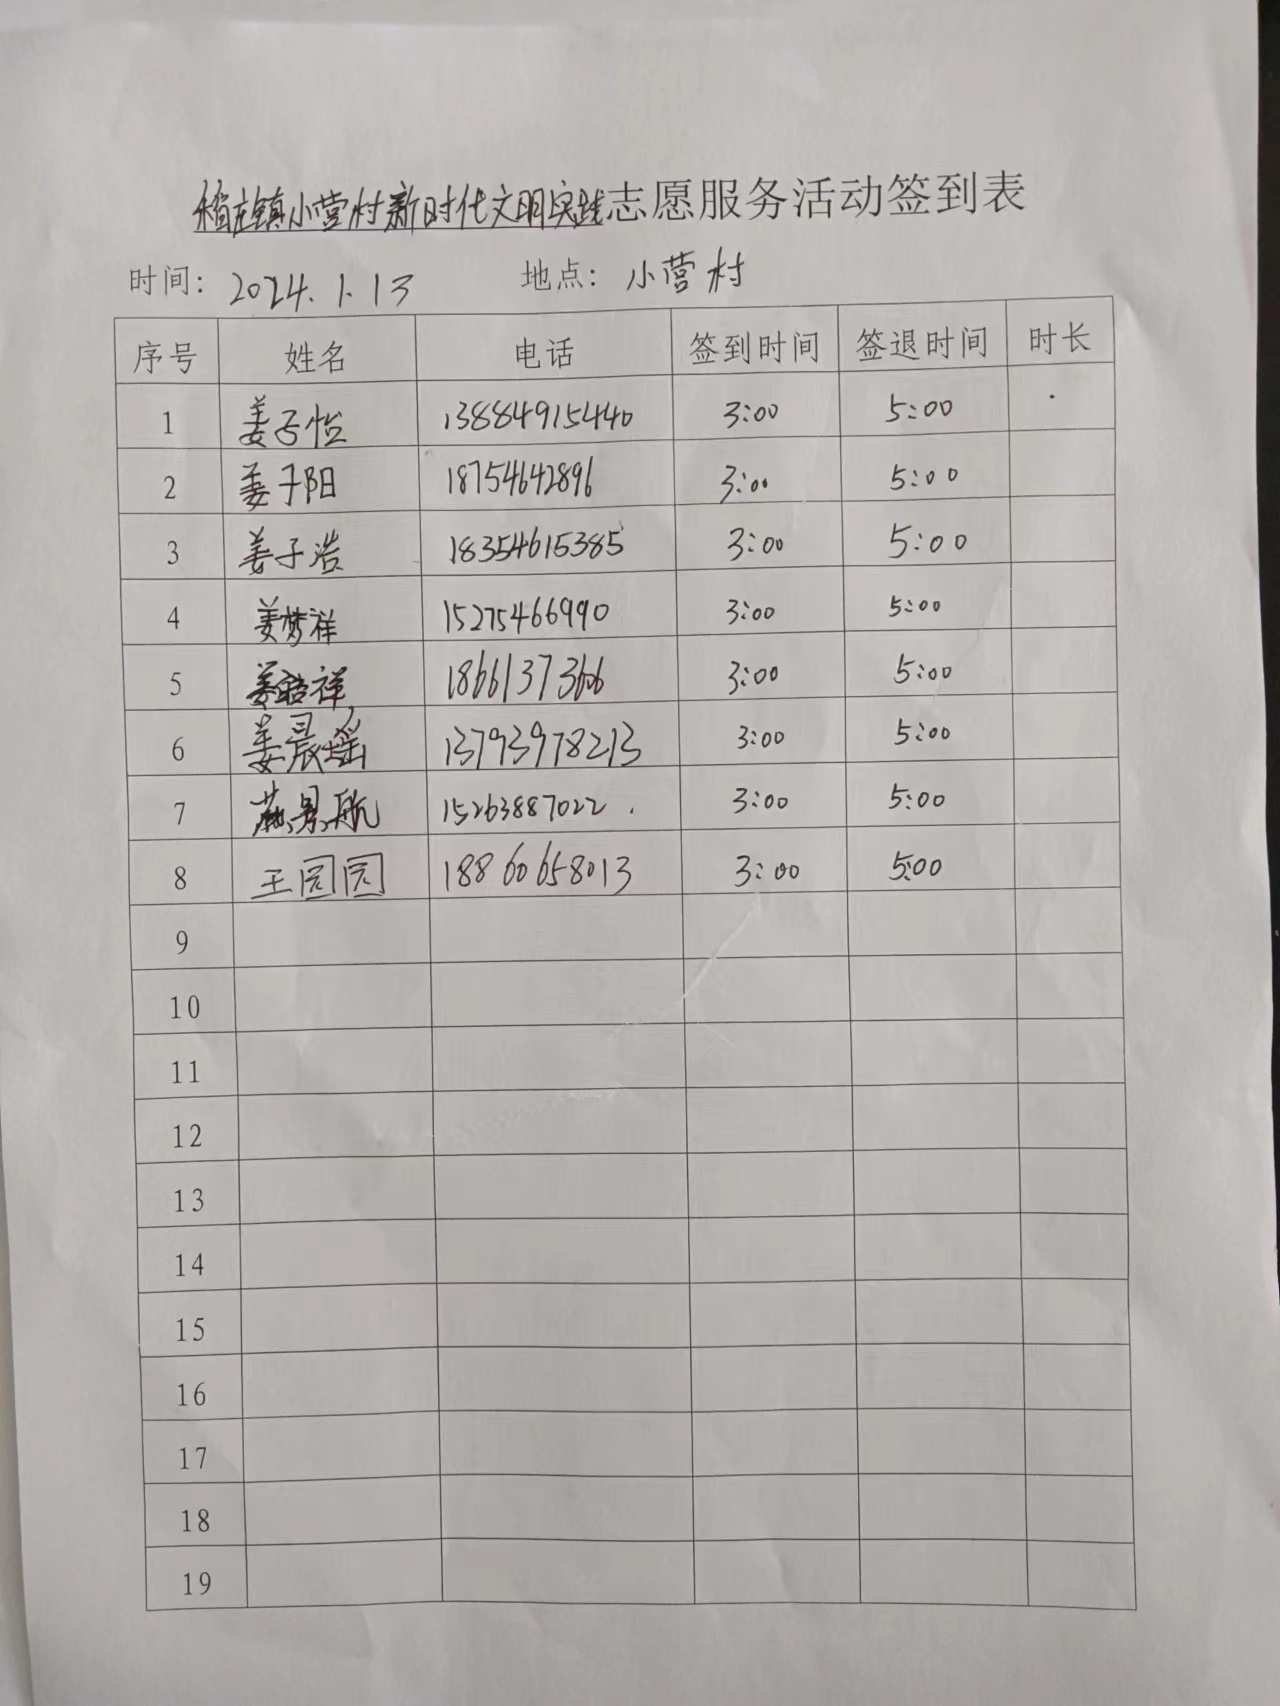 稍庄镇小营村新时代文明实践志愿服务活动签到表
时间: 2024.1.13 地点: 小营村
序号 姓名 电话 签到时间 签退时间 时长
1 姜子怡 13884915440 3:00 5:00
2 姜子阳 18754642896 3:00 5:00
3 姜子浩 18354615385 3:00 5:00
4 姜梦祥 15275466990 3:00 5:00
5 姜皓祥 1866137366 3:00 5:00
6 姜晨瑶 13793978213 3:00 5:00
7 燕景航 15263887022 . 3:00 5:00
8 王园园 18860658013 3:00 5:00
9
10
11
12
13
14
15
16
17
18
19